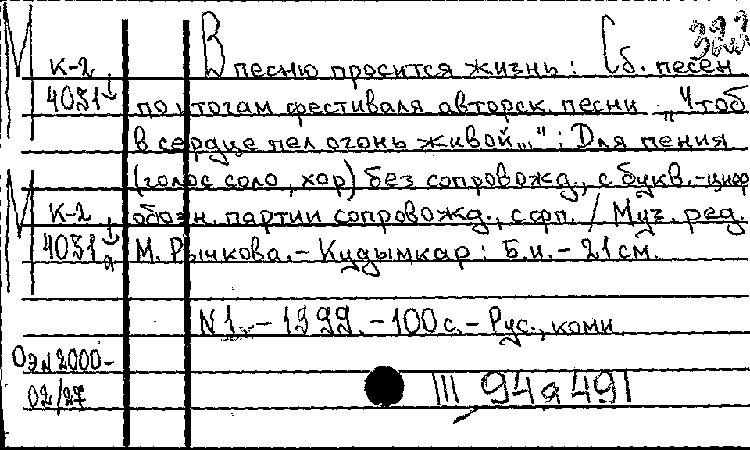 323
К-2 В песню просится жизнь: Сб. песен
4051 по итогам фестиваля авторск. песни „Чтоб
в сердце пел огонь живой...": Для пения
(голос соло, хор) без сопровожд., с букв.-цифр
К-2 обозн. партии сопровожд., с ф-п. / Муз. ред.
4051 М. Рычкова.- Кудымкар: Б.и.- 21 см.
N1.- 1999.-100 с.- Рус., коми
ОЭИ 2000-
02/27 III 94а 491